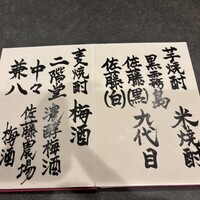 芋焼酎
黒霧島
佐藤(黒)
佐藤(白)
米焼酎
九代目
麦焼酎
二階堂
中々
兼八
梅酒
濃醇梅酒
佐藤農場
梅酒